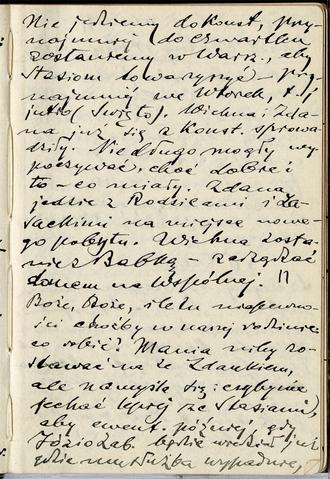 Nie jedziemy do Konst., przy-
najmniej do czwartku
zostaniemy w Warsz., aby
Stasiom towarzyszyć – przy-
najmniej we Wtorek, t. j.
jutro (Święto). Wichna i Zda-
na już się z Konst. sprowa-
dziły. Niedługo mogły wy-
poczywać, choć dobre i
to – co miały. Zdana
jedzie z Rodzicami i
na miejsce nowe-
go pobytu. Wichna zosta-
nie z Babką – zarządzać
domem na Wspólnej. !!
Boże, Boże, ileż niepewno-
ści choćby w naszej rodzinie:
co robić? Mania niby zo-
stawać na że Zdankiem,
ale namyśla się: czyby nie
jechać lepiej ze Stasiami,
aby ewent. później, gdy
Józio Zab. będzie wiedział już
gdzie mu służba wypadnie,